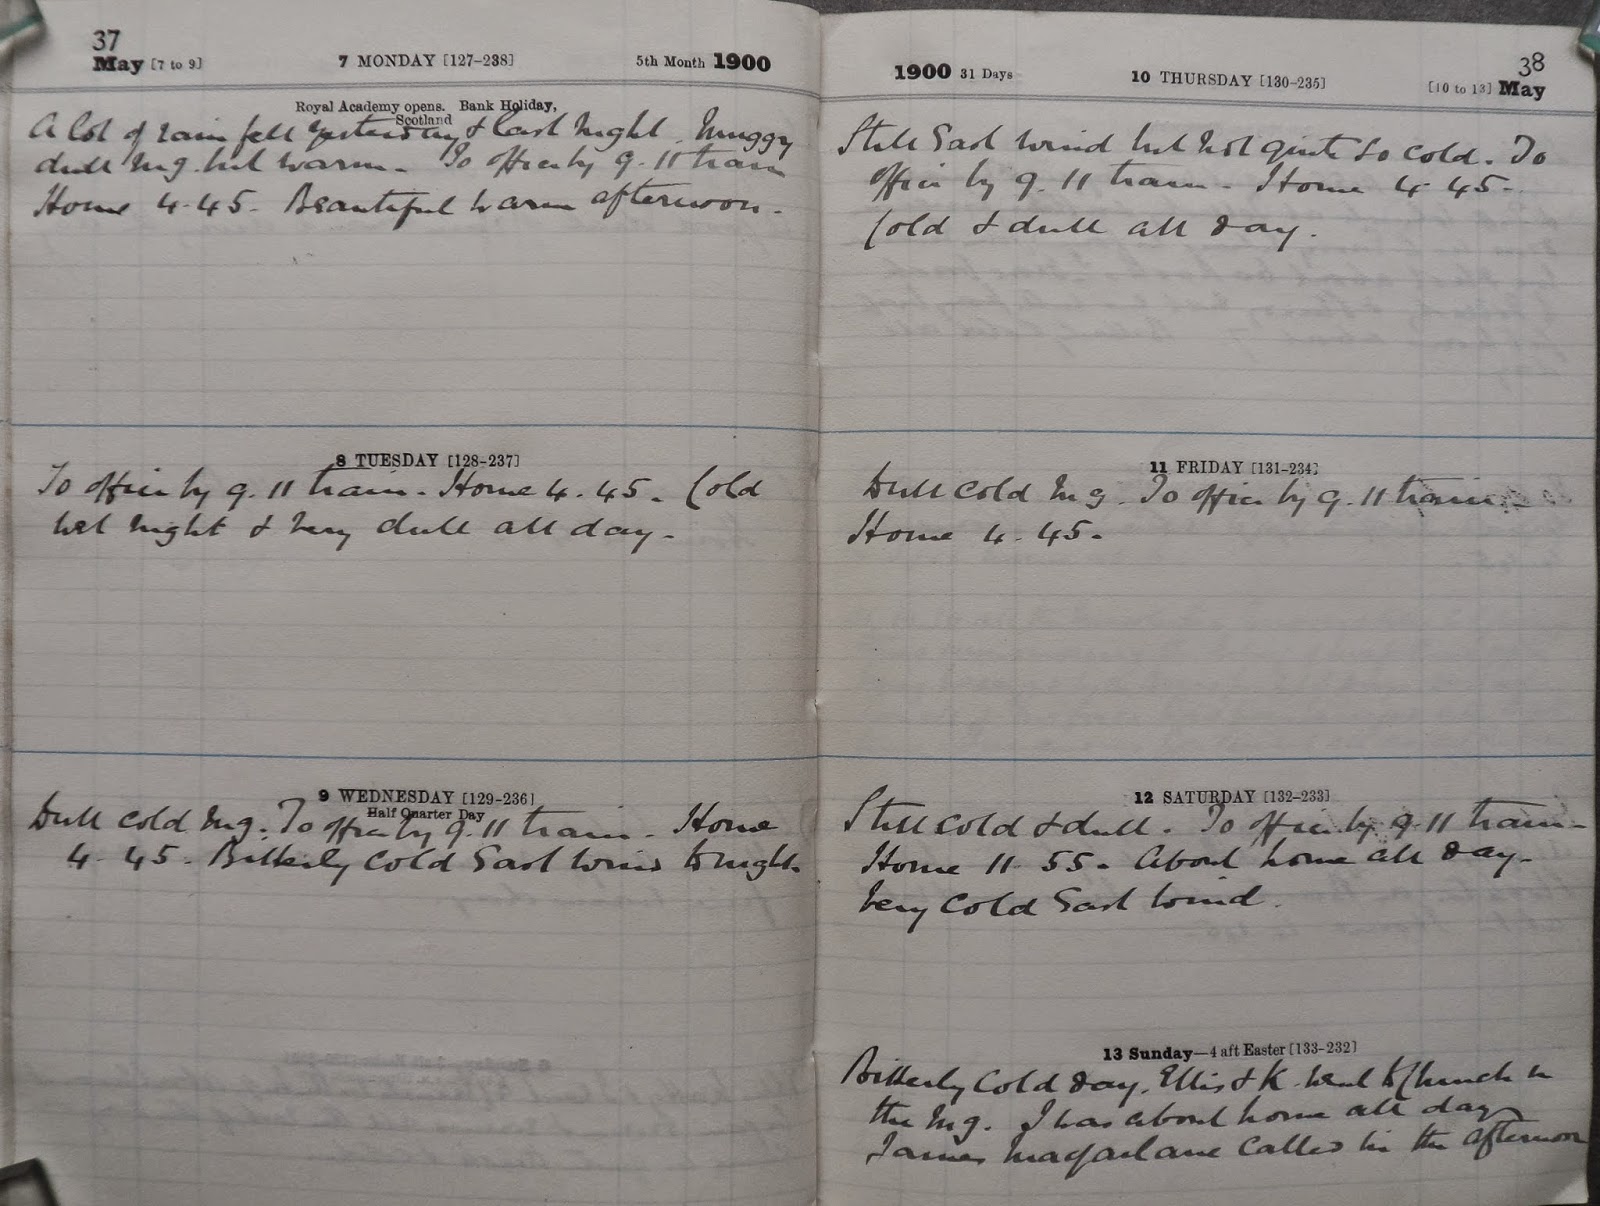 37
May [7 to 9] 7 MONDAY [127-238] 5th Month 1900
Royal Academy opens. Bank Holiday,
Scotland
A lot of rain fell yesterday & last night. Muggy
dull mg. but warm. To office by 9.11 train
Home 4-45. Beautiful warm afternoon.
8 TUESDAY [128-237]
To office by 9.11 train. Home 4.45. Cold
wet night & very dull all day.
9 WEDNESDAY [129-236]
Half Quarter Day
Dull cold mg. To office by 9.11 train. Home
4-45. Bitterly cold East wind tonight.
38
1900 31 Days 10 THURSDAY [130-235] [10 to 13] May
Still East wind but not quite so cold. To
office by 9.11 train. Home 4-45.
Cold & dull all day.
11 FRIDAY [131-234]
Dull cold mg. To office by 9.11 train
Home 4.45.
12 SATURDAY [132-233]
Still cold & dull. To office by 9.11 train.
Home 11-55. About home all day.
Very cold East wind.
13 Sunday—4 aft Easter [133-232]
Bitterly cold day. Ellis & K. went to Church in
the mg. I was about home all day
James Macfarlane called in the afternoon